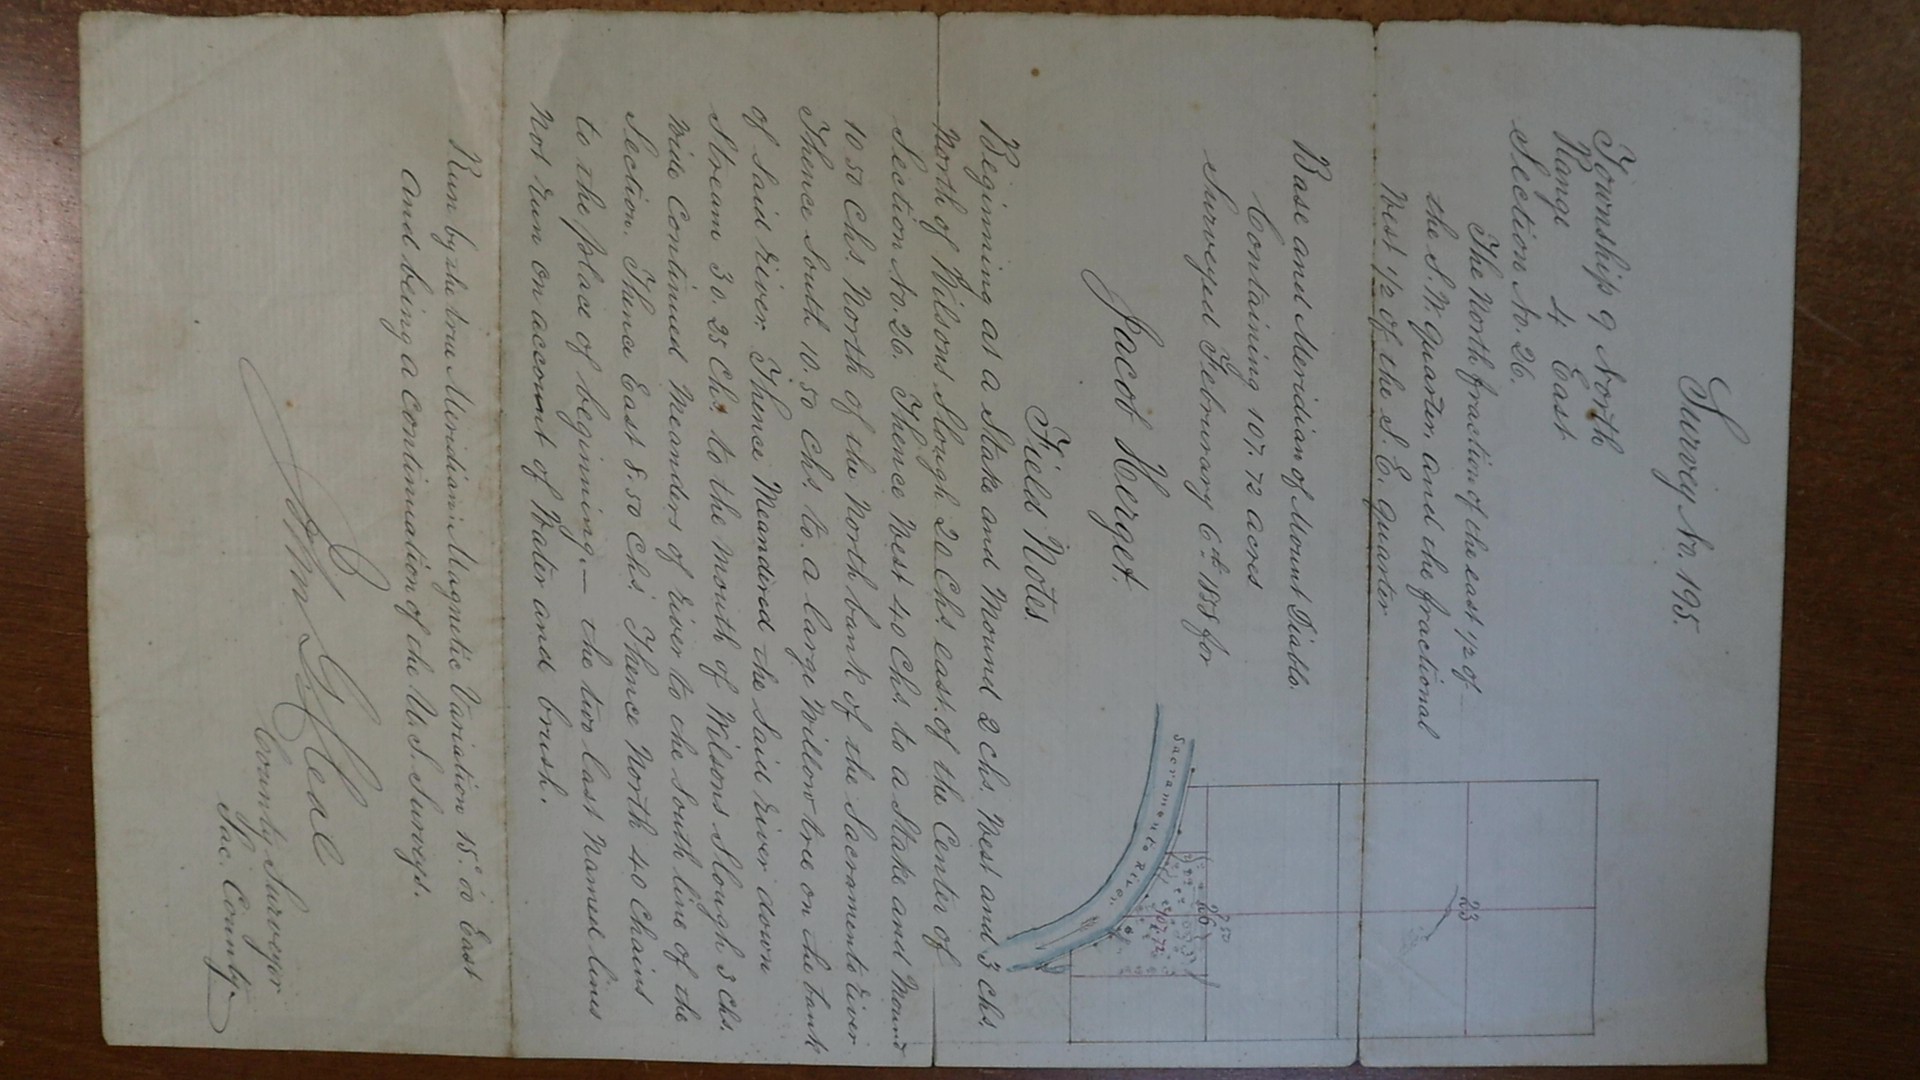 Survey No. 195.
Township 9 North
Range 4 East
Section No. 26.
The North fraction of the east 1/2 of
the S.W. quarter and the fractional
West 1/2 of the S. E. quarter
Base and Meridian of Mount Diablo.
Containing 107.72 acres
Surveyed February 6th 1858 for
Jacob Herget.
Field Notes
Beginning at a Stake and Mound 2 chs. West and 3 chs.
North of Wilsons Slough 20 Chs. east of the Center of
Section No. 26. Thence West 40 Chs. to a Stake and Mound
10.50 Chs. North of the North bank of the Sacramento river
Thence South 10.50 Chs to a large Willow tree on the bank
of Said river. Thence Meandered the Said river down
Stream 30.25 Chs. to the Mouth of Wilsons Slough 3 Chs.
Wide Continued Meanders of river to the South line of the
Section. Thence East 8.50 Chs. Thence North 40 Chains
to the place of beginning. — the two last Named lines
Not run on account of Water and brush.
Run by the true Meridian Magnetic Variation 15.° East
And being a Continuation of the U. S. Surveys.
County Surveyor
Sac. County
23
26
107.72
Sacramento River